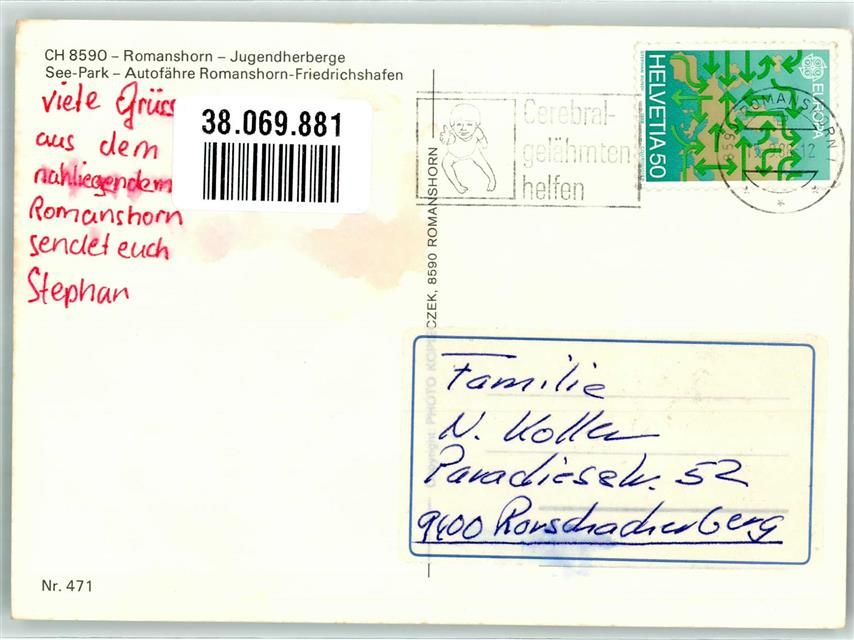 CH 8590 – Romanshorn – Jugendherberge
See-Park – Autofähre Romanshorn-Friedrichshafen
viele Grüss
aus dem
nahliegendem
Romanshorn
sendet euch
Stephan
38.069.881
Cerebral-
gelähmten
helfen
HELVETIA 50
EUROPA
8590 ROMANSHORN 1
Copyright PHOTO KOPIECZEK, 8590 ROMANSHORN
Familie
N. Koller
Paradiesstr. 52
9400 Rorschacherberg
Nr. 471